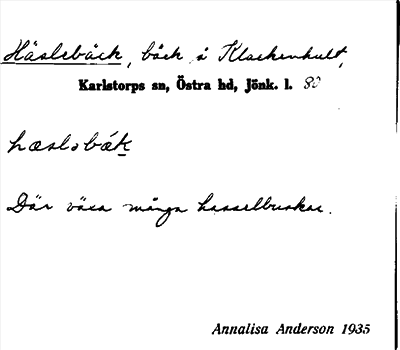 Häslebäck, bäck å Klackenhult,
Karlstorps sn, Östra hd, Jönk. l. 80
hæslabák
Där växa många hasselbuskar.
Annalisa Anderson 1935